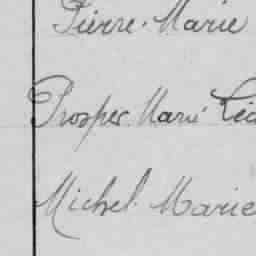 Pierre Marie
Prosper Marie Léo
Michel Marie